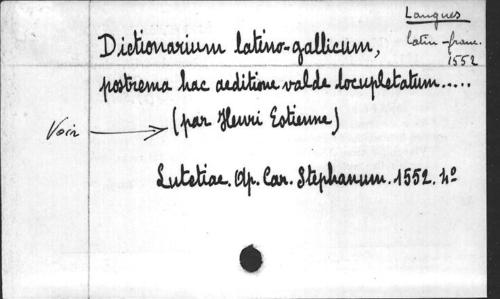 Langues
latin-franc.
1552
Dictionarium latino-gallicum,
postrema hac aeditione valde locupletatum.....
Voir (par Henri Estienne)
Lutetiae. Ap. Car. Stephanum. 1552. 4º